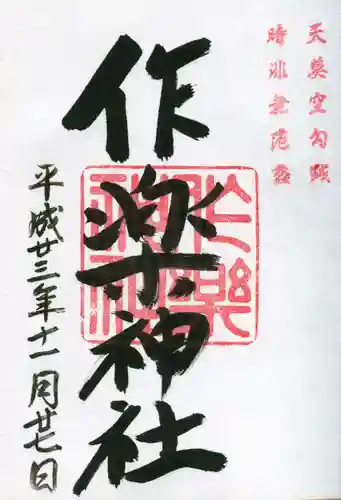 天莫空勾践
時非無范蠡
作楽神社
平成廿三年十一月廿七日